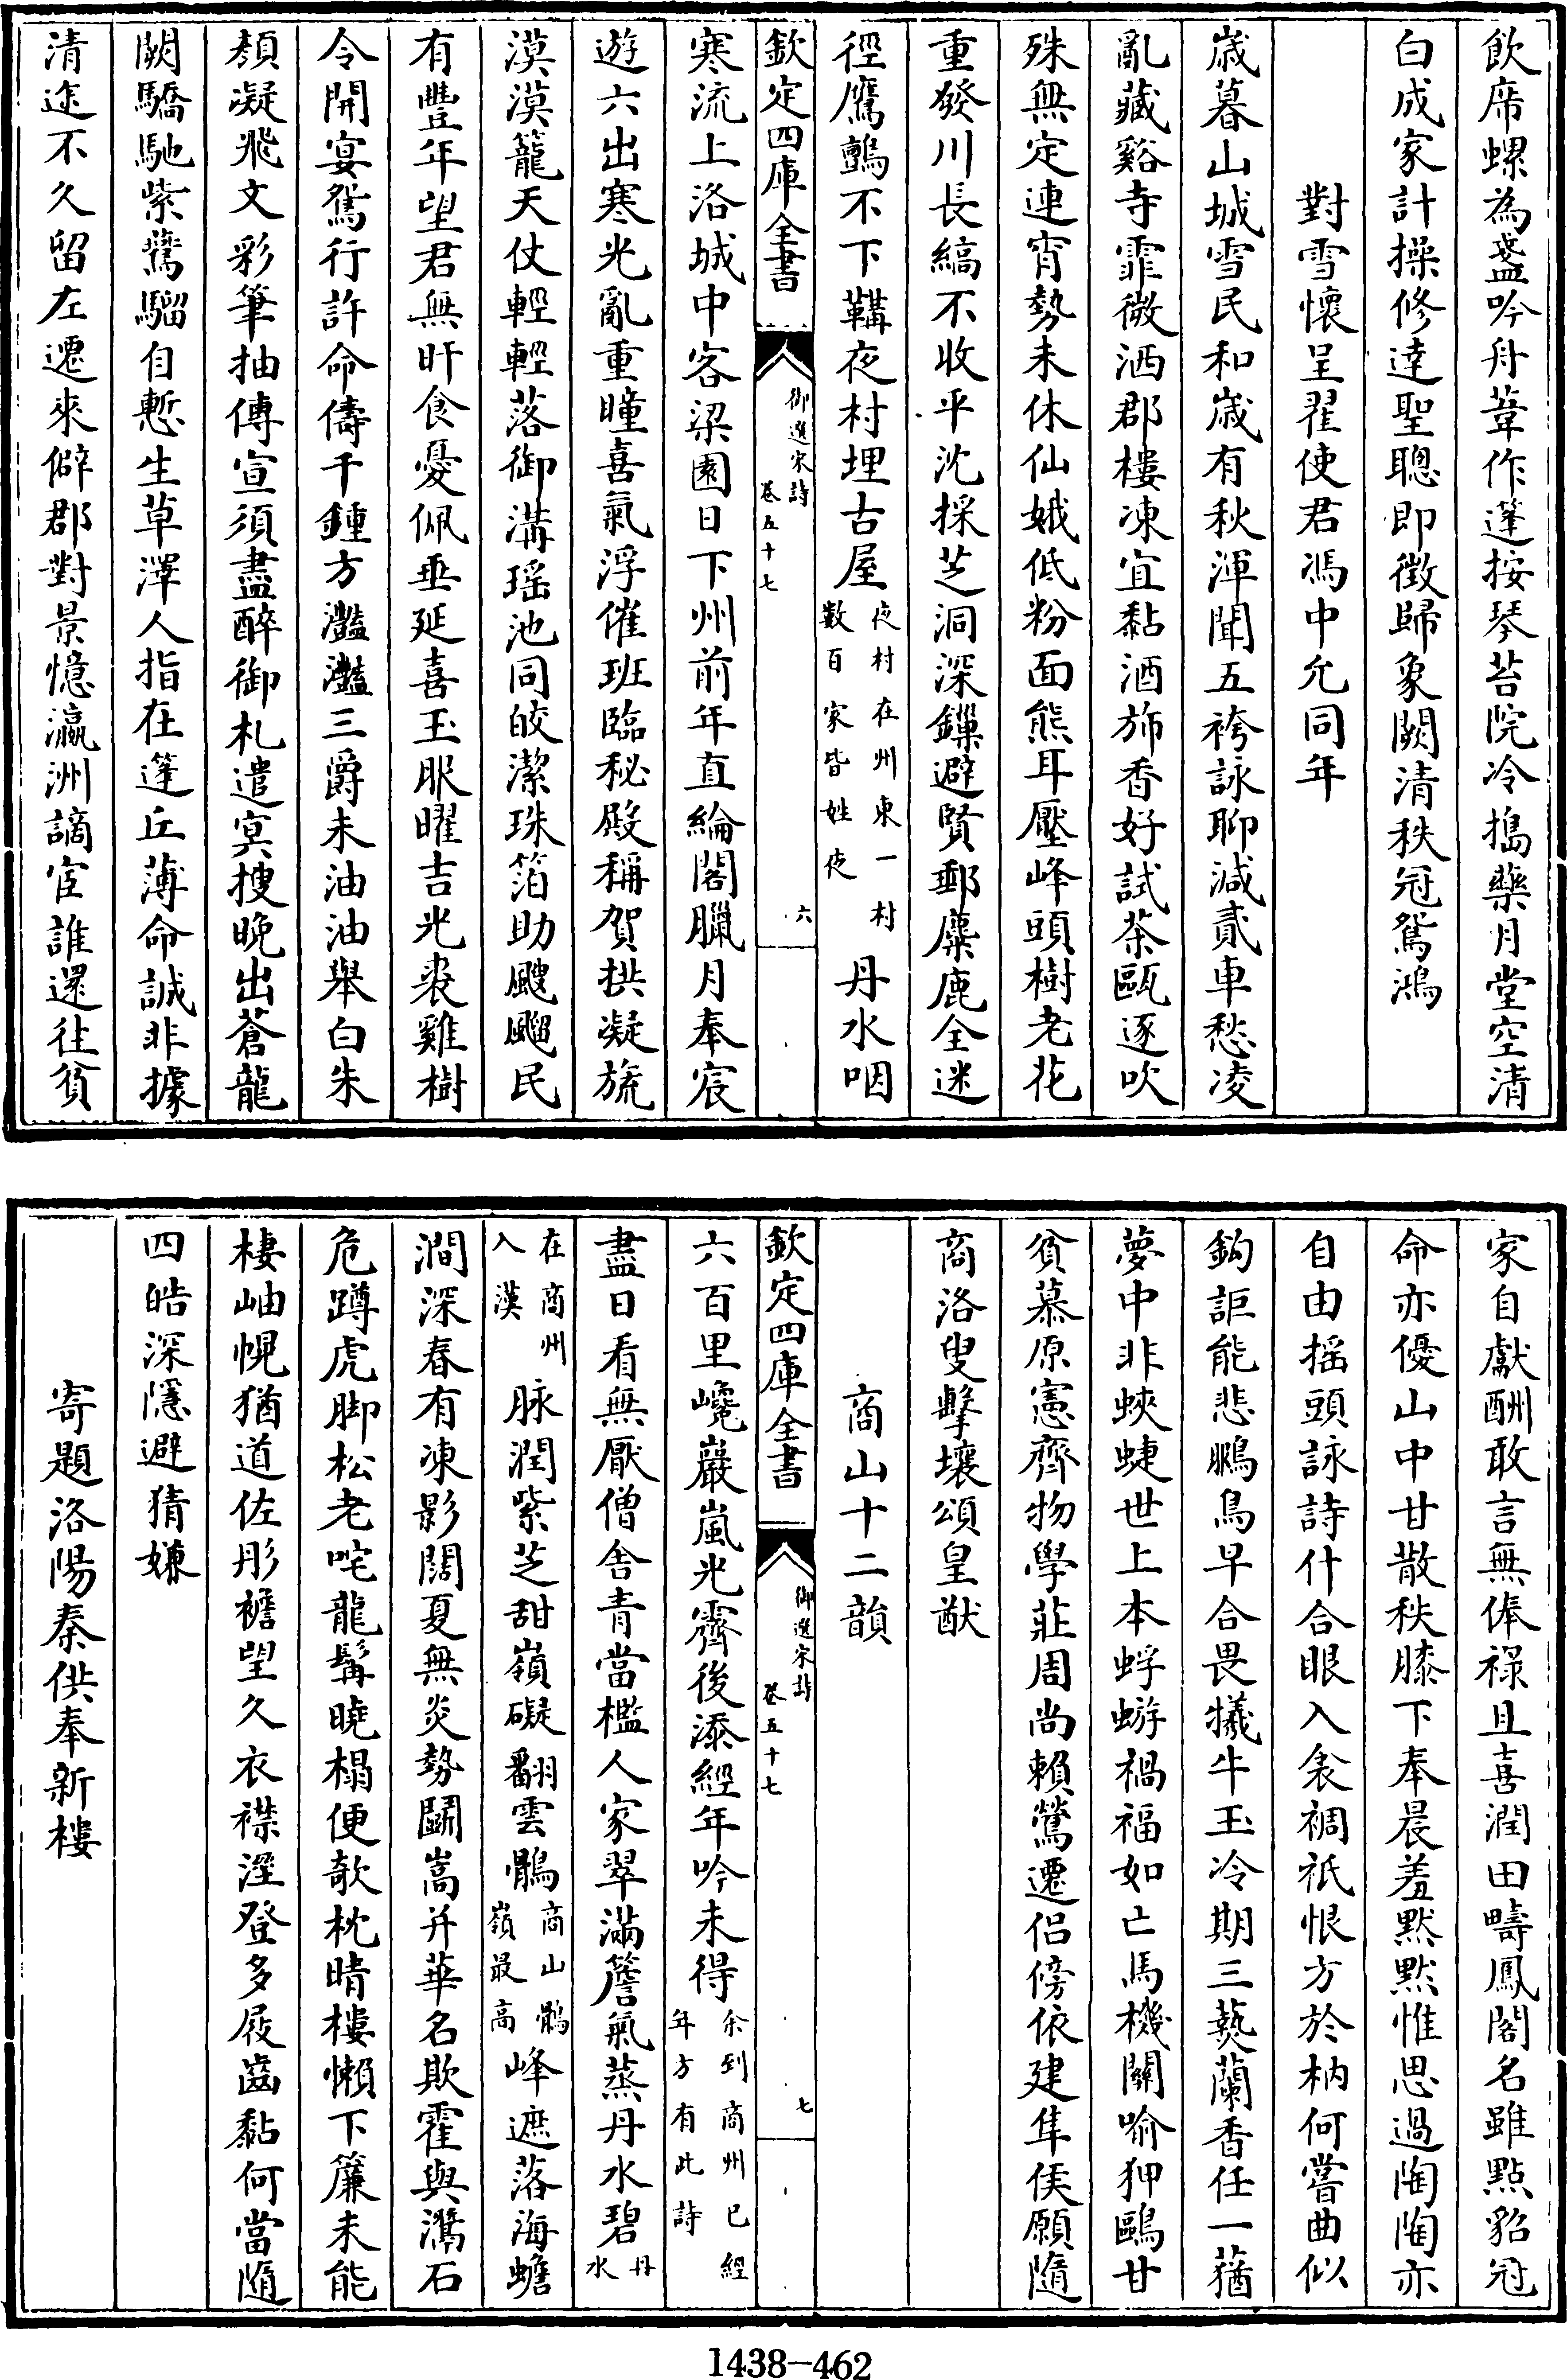 飲席螺為盞吟舟葦作篷按琴苔院冷搗藥月堂空清
白成家計操修達聖聰即徵歸象闕清秩冠鴛鴻
對雪懷呈翟使君馮中允同年
歲暮山城雪民和歲有秋渾聞五袴詠聊減貳車愁凌
亂藏谿寺霏微洒郡樓凍宜黏酒斾香好試茶甌逐吹
殊無定連宵勢未休仙娥低粉面熊耳壓峰頭樹老花
重發川長縞不收平沈採芝洞深鏁避賢郵麋鹿全迷
徑鷹鸇不下鞲夜村埋古屋夜村在州東一村數百家皆姓夜丹水咽
欽定四庫全書
御選宋詩
卷五十七
六
寒流上洛城中客梁園日下州前年直綸閣臘月奉宸
遊六出寒光亂重瞳喜氣浮催班臨秘殿稱賀拱凝旒
漠漠籠天仗輕輕落御溝瑶池同皎潔珠箔助颼飀民
有豐年望君無旰食憂佩垂延喜玉服曜吉光裘雞樹
令開宴鴛行許命儔千鍾方灩灩三爵未油油舉白朱
顏凝飛文彩筆抽傳宣須盡醉御札遣冥搜晚出蒼龍
闕驕馳紫燕騮自慙生草澤人指在蓬丘薄命誠非據
清途不久留左遷來僻郡對景憶瀛洲謫宦誰還往貧
家自獻酬敢言無俸祿且喜潤田疇鳳閣名雖點貂冠
命亦優山中甘散秩膝下奉晨羞默默惟思過陶陶亦
自由摇頭詠詩什合眼入衾裯祇恨方於枘何嘗曲似
鈎詎能悲鵩鳥早合畏犧牛玉冷期三爇蘭香任一蕕
夢中非蛺蜨世上本蜉蝣禍福如亡馬機關喻狎鷗甘
貧慕原憲齊物學莊周尚賴鶯遷侶傍依建隼侯願隨
商洛叟擊壤頌皇猷
商山十二韻
欽定四庫全書
御選宋詩
卷五十七
七
六百里巉巖嵐光霽後添經年吟未得余到商州已經年方有此詩
盡日看無厭僧舍青當檻人家翠滿簷氣蒸丹水碧丹水
在商州入漢脉潤紫芝甜嶺礙翻雲鶻商山鶻嶺最高峰遮落海蟾
澗深春有凍影闊夏無炎勢鬭嵩并華名欺霍與灊石
危蹲虎脚松老咤龍髯曉榻便欹枕晴樓懶下簾未能
棲岫幌猶道佐彤襜望久衣襟溼登多屐齒黏何當隨
四皓深隱避猜嫌
寄題洛陽秦供奉新樓
1438-462